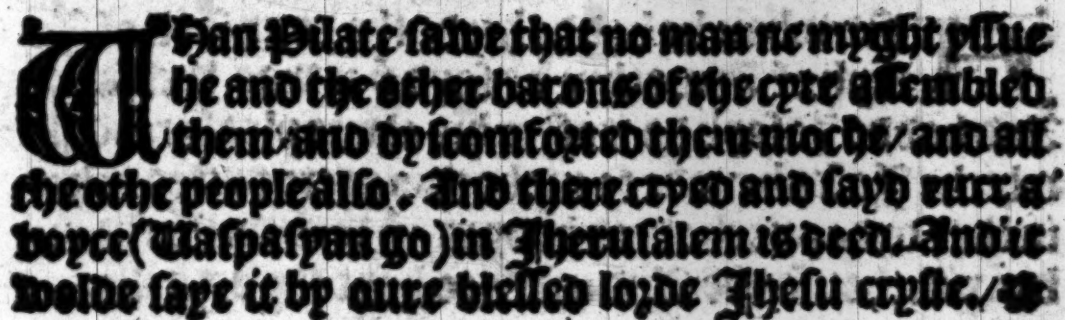 WHan Pilate sawe that no man ne myght yssue
he and the other barons of the cyte assembled
them / and dyscomforted them moche / and all
the othe people also . And there cryed and sayd euer a
voyce (Waspasyan go) in Jherusalem is deed. And it
wolde saye it by oure blessed lorde Jhesu cryste. /